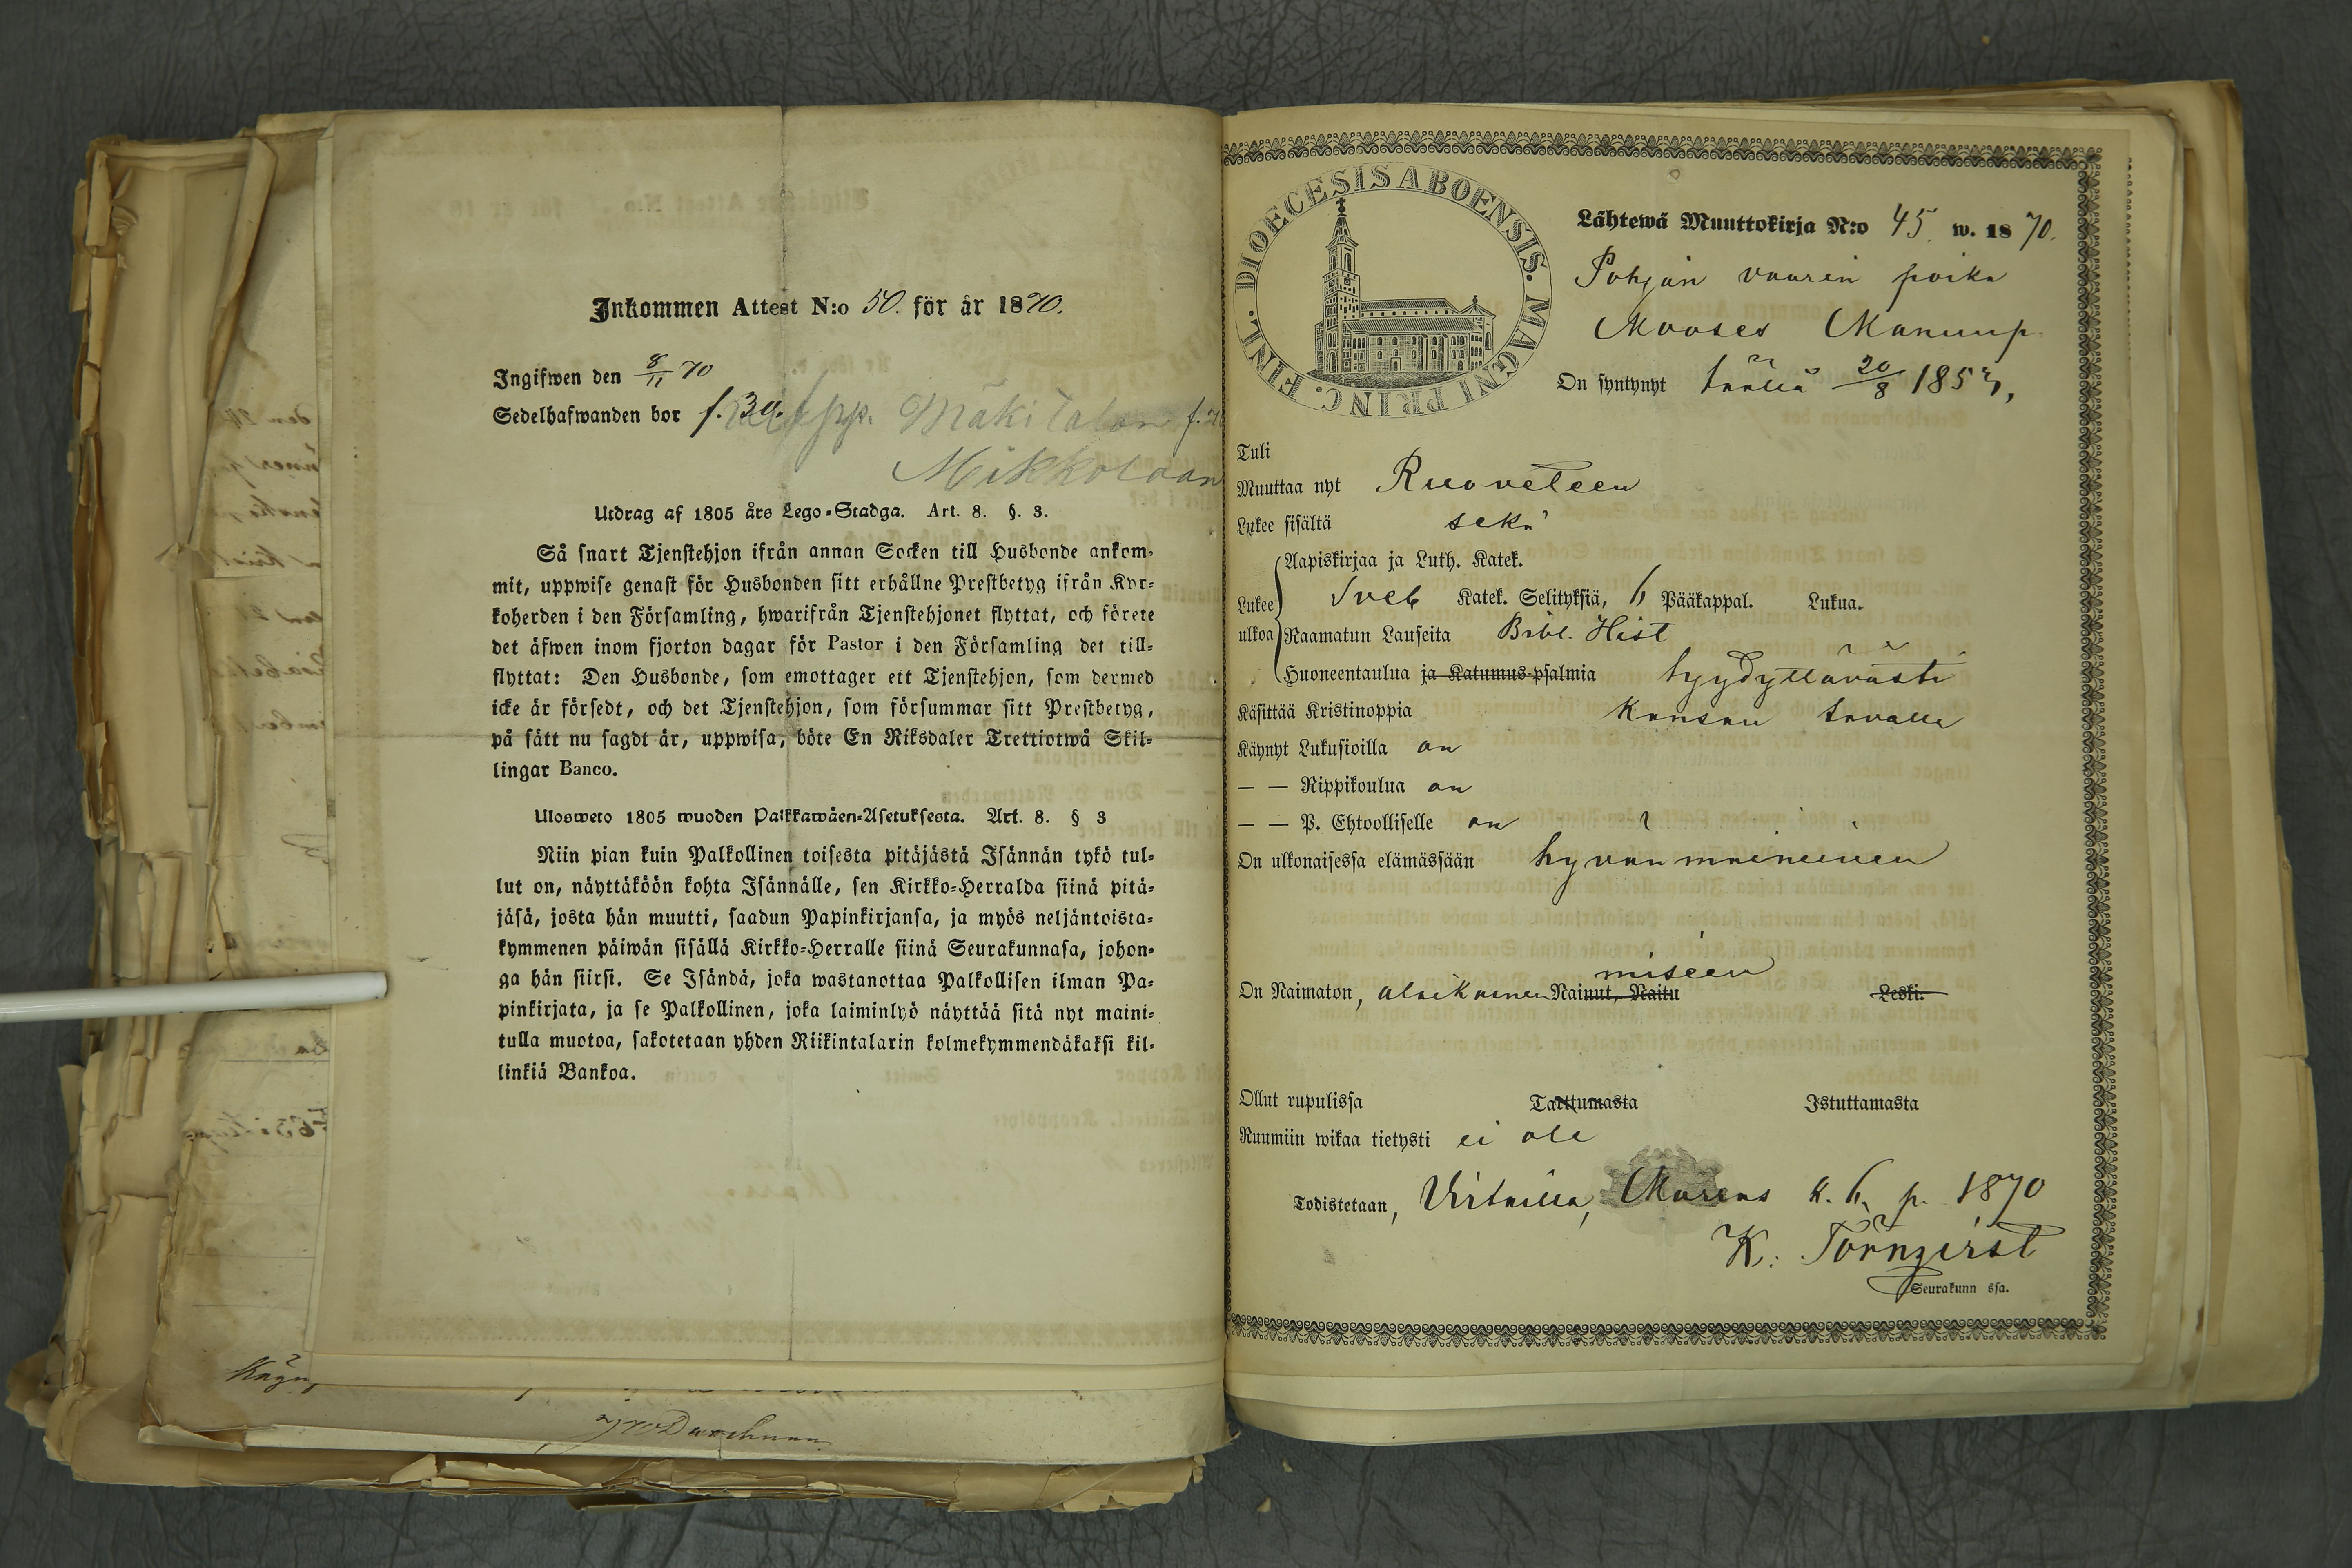 Inkommen Attest N:o 50. för år 1870.
Ingifwen den 8/11 70
Sedelhafwanden bor f. 30. Mäkitalon
Mikkolaan
Utdrag af 1805 års Lego-Stadga. Art. 8. §. 3.
Så snart Tjenstehjon ifrån annan Socken till Husbonde ankom-
mit, uppwise genast för Husbonden sitt erhållne Prestbetyg ifrån Kyr-
koherden i den Församling, hwarifrån Tjenstehjonet flyttat, och förete
det äfwen inom fjorton dagar för Pastor i den Församling det till-
flyttat: Den Husbonde, som emottager ett Tjenstehjon, som dermed
icke är försedt, och det Tjenstehjon, som försummar sitt Prestbetyg,
på sätt nu sagdt är, uppwisa, böte En Riksdaler Trettiotwå Skil-
lingar Banco.
Ulosweto 1805 wuoden Palkkawäen-Asetuksesta. Art. 8. § 3
Niin pian kuin Palkollinen toisesta pitäjästä Isännän tykö tul-
lut on, näyttäköön kohta Isännälle, sen Kirkko-Herralda siinä pitä-
jäsä, josta hän muutti, saadun Papinkirjansa, ja myös neljäntoista-
kymmenen päiwän sisällä Kirkko-Herralle siinä Seurakunnasa, johon-
ga hän siirsi. Se Isändä, joka wastanottaa Palkollisen ilman Pa-
pinkirjata, ja se Palkollinen, joka laiminlyö näyttää sitä nyt maini-
tulla muotoa, sakotetaan yhden Riikintalarin kolmekymmendäkaksi kil-
linkiä Bankoa.
DIOECESIS ABOENSIS. MAGNI PRINC. FINL.
Lähtewä Muuttokirja N:o 45. w. 1870.
Pohjan vaarin poika
Mooses Manuup
On syntynyt täällä 20/8 1853,
Tuli
Muuttaa nyt Ruoveteen
Lukee sisältä sekä
Aapiskirjaa ja Luth. Katek.
Lukee ulkoa Sveb Katek. Selityksiä, 6 Pääkappal. Lukua.
Raamatun Lauseita Bibl. Hist
Huoneentaulua ja Katumus-psalmia tyydyttävästi
Käsittää Kristinoppia kansan tavalla
Käynyt Lukusioilla on
— — Rippikoulua on
— — P. Ehtoolliselle on
On ulkonaisessa elämässään hyvän maineinen
miseen
On Naimaton, alaikäinen Nainut, Naitu Leski.
Ollut rupulissa Tarttumasta Istuttamasta
Ruumiin wikaa tietysti ei ole
Todistetaan, Virtailla, Marras k. 6. p. 1870
K. Törnqvist
Seurakunn ssa.